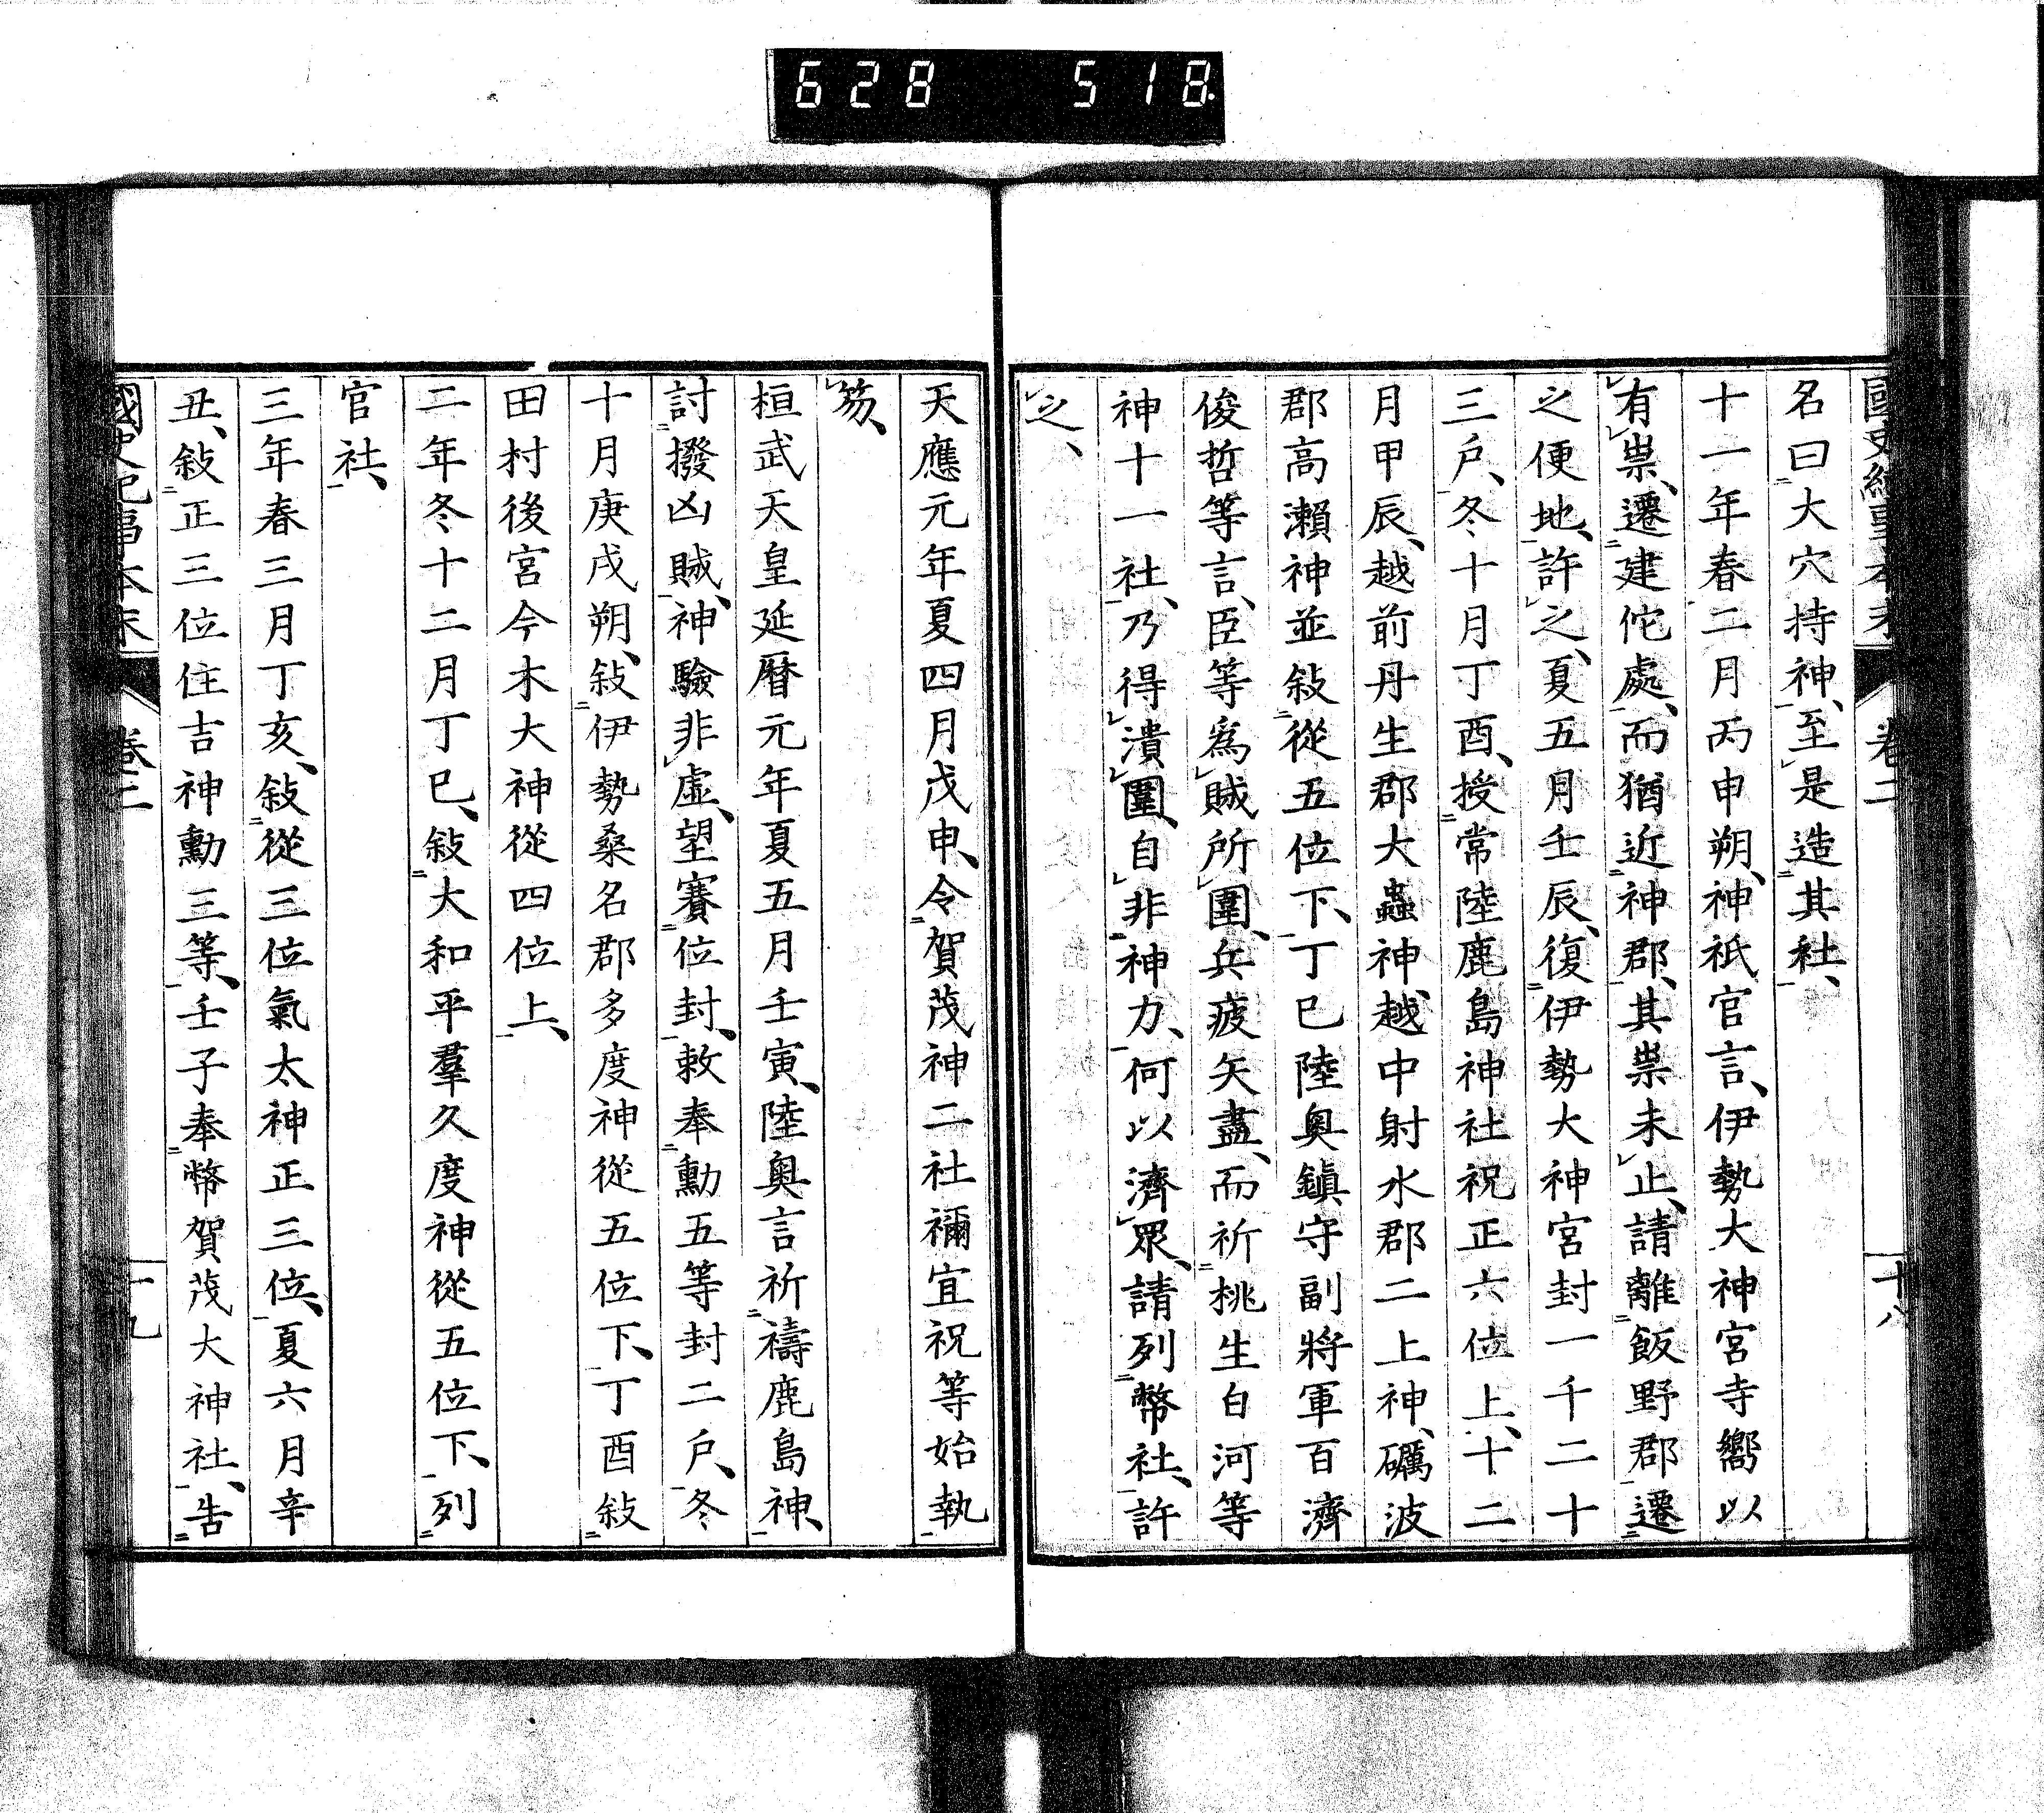 628 518
國史紀事本末 卷二 十八
名曰大穴持神、至是造其社、
十一年春二月丙申朔、神祇官言、伊勢大神宮寺嚮以
有祟、遷建佗處、而猶近神郡、其祟未止、請離飯野郡遷
之便地、許之、夏五月壬辰、復伊勢大神宮封一千二十
三戶、冬十月丁酉、授常陸鹿島神社祝正六位上、十二
月甲辰、越前丹生郡大蟲神、越中射水郡二上神、礪波
郡高瀨神並敍從五位下、丁巳陸奥鎭守副將軍百濟
俊哲等言、臣等爲賊所圍、兵疲矢盡、而祈桃生白河等
神十一社、乃得潰圍、自非神力、何以濟眾、請列幣社、許
之、
天應元年夏四月戊申、令賀茂神二社禰宜祝等始執
笏、
桓武天皇延曆元年夏五月壬寅、陸奥言祈禱鹿島神、
討撥凶賊、神驗非虛、望賽位封、敕奉勳五等封二戶、冬
十月庚戌朔、敍伊勢桑名郡多度神從五位下、丁酉敍
田村後宮今木大神從四位上、
二年冬十二月丁巳、敍大和平羣久度神從五位下、列
官社、
三年春三月丁亥、敍從三位氣太神正三位、夏六月辛
丑、敍正三位住吉神勳三等、壬子奉幣賀茂大神社、告
國史紀事本末 卷二 十九